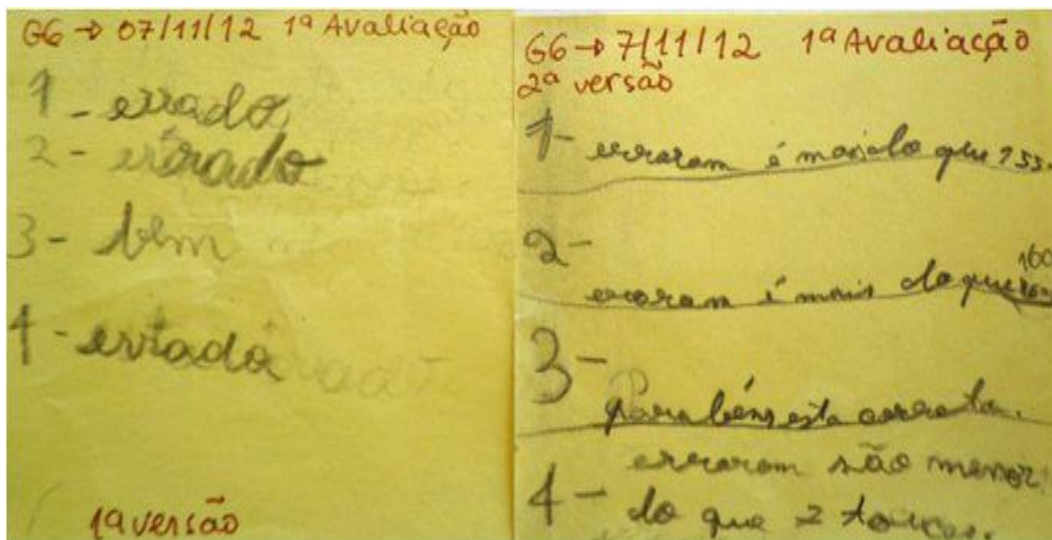 G6 → 07/11/12 1ª Avaliação
1 - errado
2 - errado
3 - bem
4 - errado
1ª versão
G6 → 7/11/12 1ª Avaliação
2ª versão
1- erraram é mais do que 155.
2-
erraram é mais do que 160
3-
Parabéns esta correta.
erraram são menor
4- do que 2